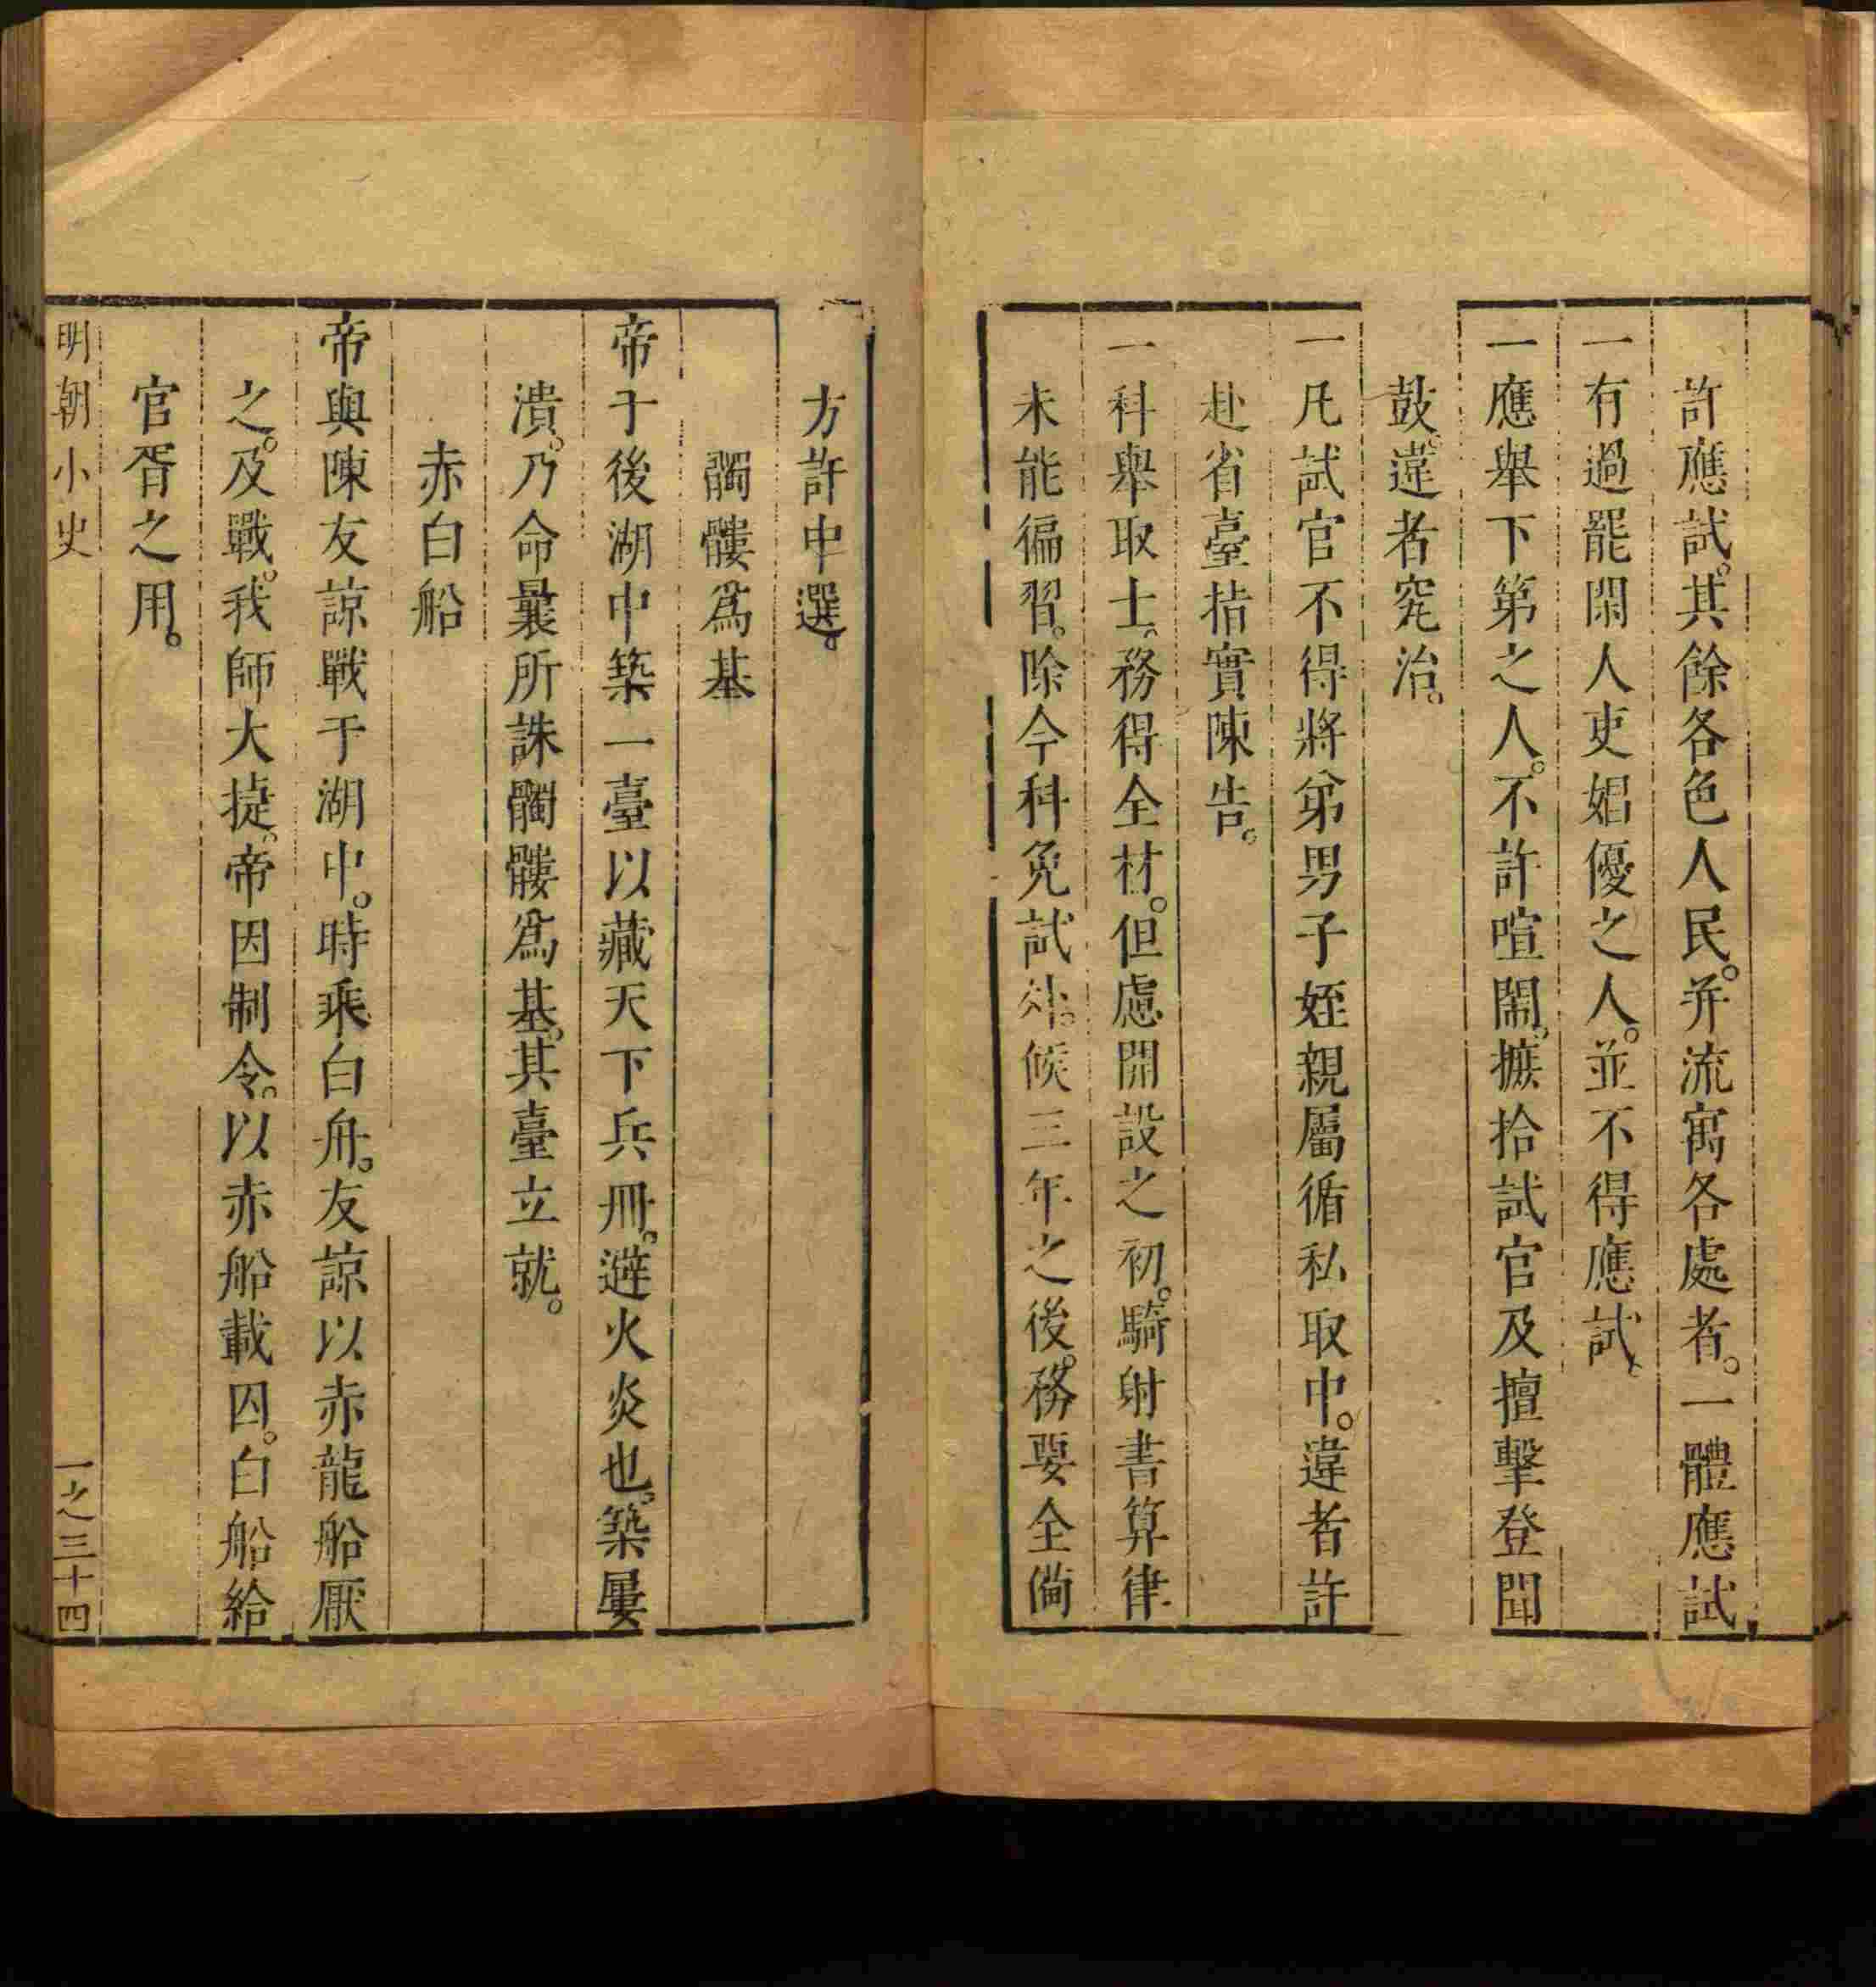 許應試。其餘各色人民。并流寓各處者。一體應試
一有過罷閑人吏娼優之人。並不得應試、
一應舉下第之人。不許喧鬧。摭拾試官及擅擊登聞
鼓。違者究治。
一凡試官不得將弟男子姪親屬循私取中。違者許
赴省臺指實陳告。
一科舉取士。務得全材。但慮開設之初。騎射書算律
未能徧習。除今科免試外。候三年之後。務要全備
方許中選。
髑髏爲基
帝于後湖中築一臺以藏天下兵冊。避火炎也。築屢
潰。乃命曩所誅髑髏爲基。其臺立就。
赤白船
帝與陳友諒戰于湖中。時乘白舟。友諒以赤龍船厭
之。及戰。我師大捷。帝因制令。以赤船載囚。白船給
官胥之用。
明朝小史
一之三十四